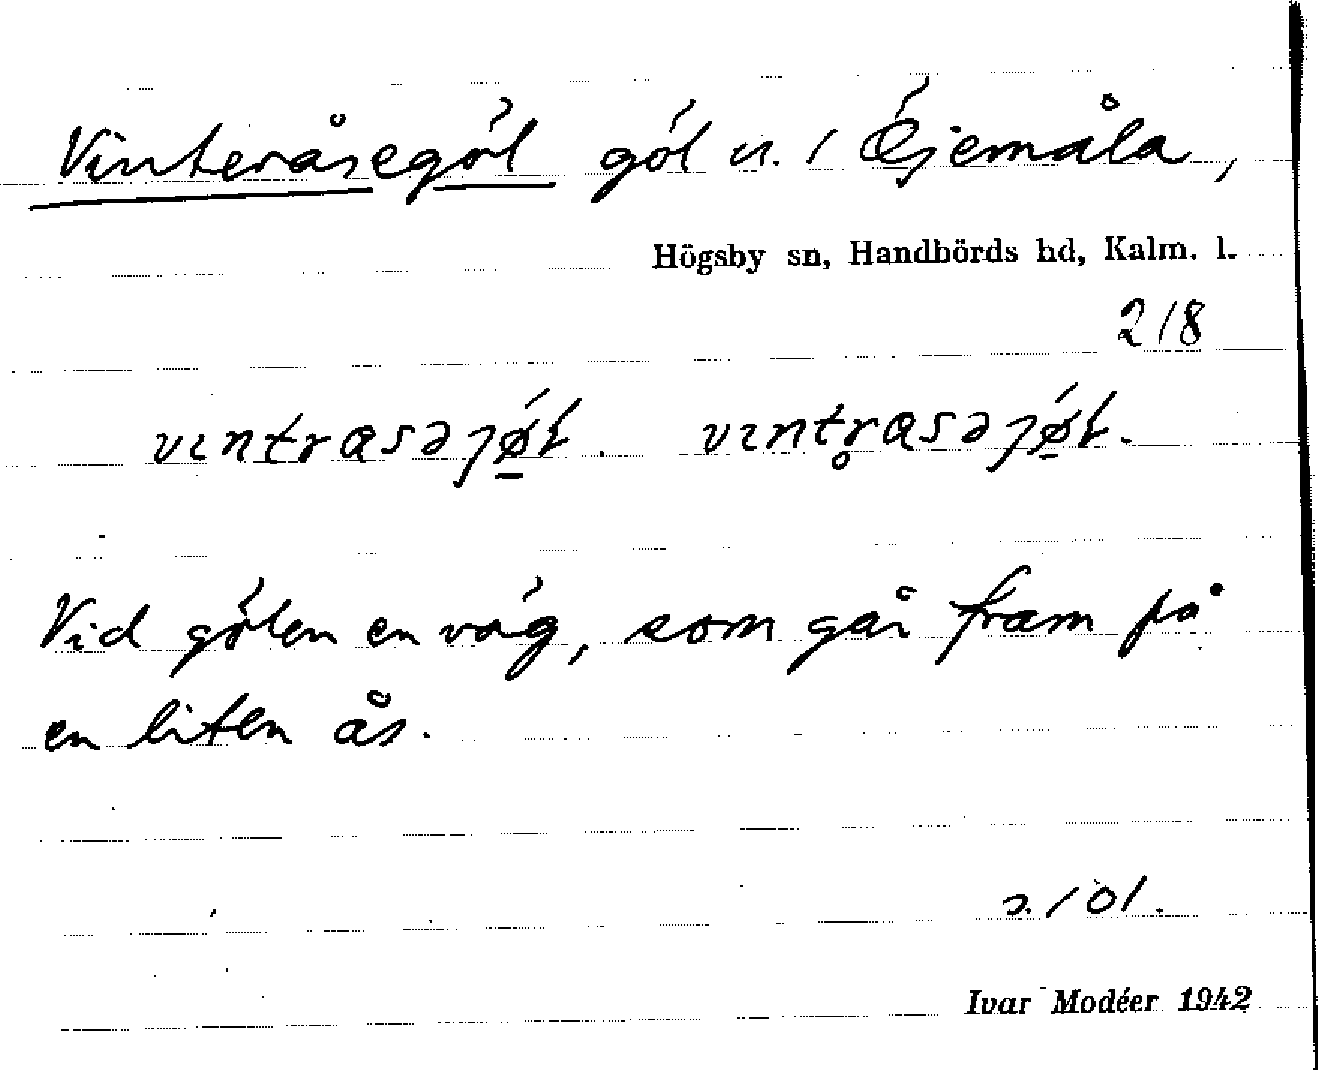 Vinteråsegöl göl u. / Öjemåla,
Högsby sn, Handbörds hd, Kalm. l.
218
vıntrasəȷø̱l. vıntr̥asəȷø̱l.
Vid gölen en väg, som går fram på
en liten ås.
s. 101.
Ivar Modéer 1942